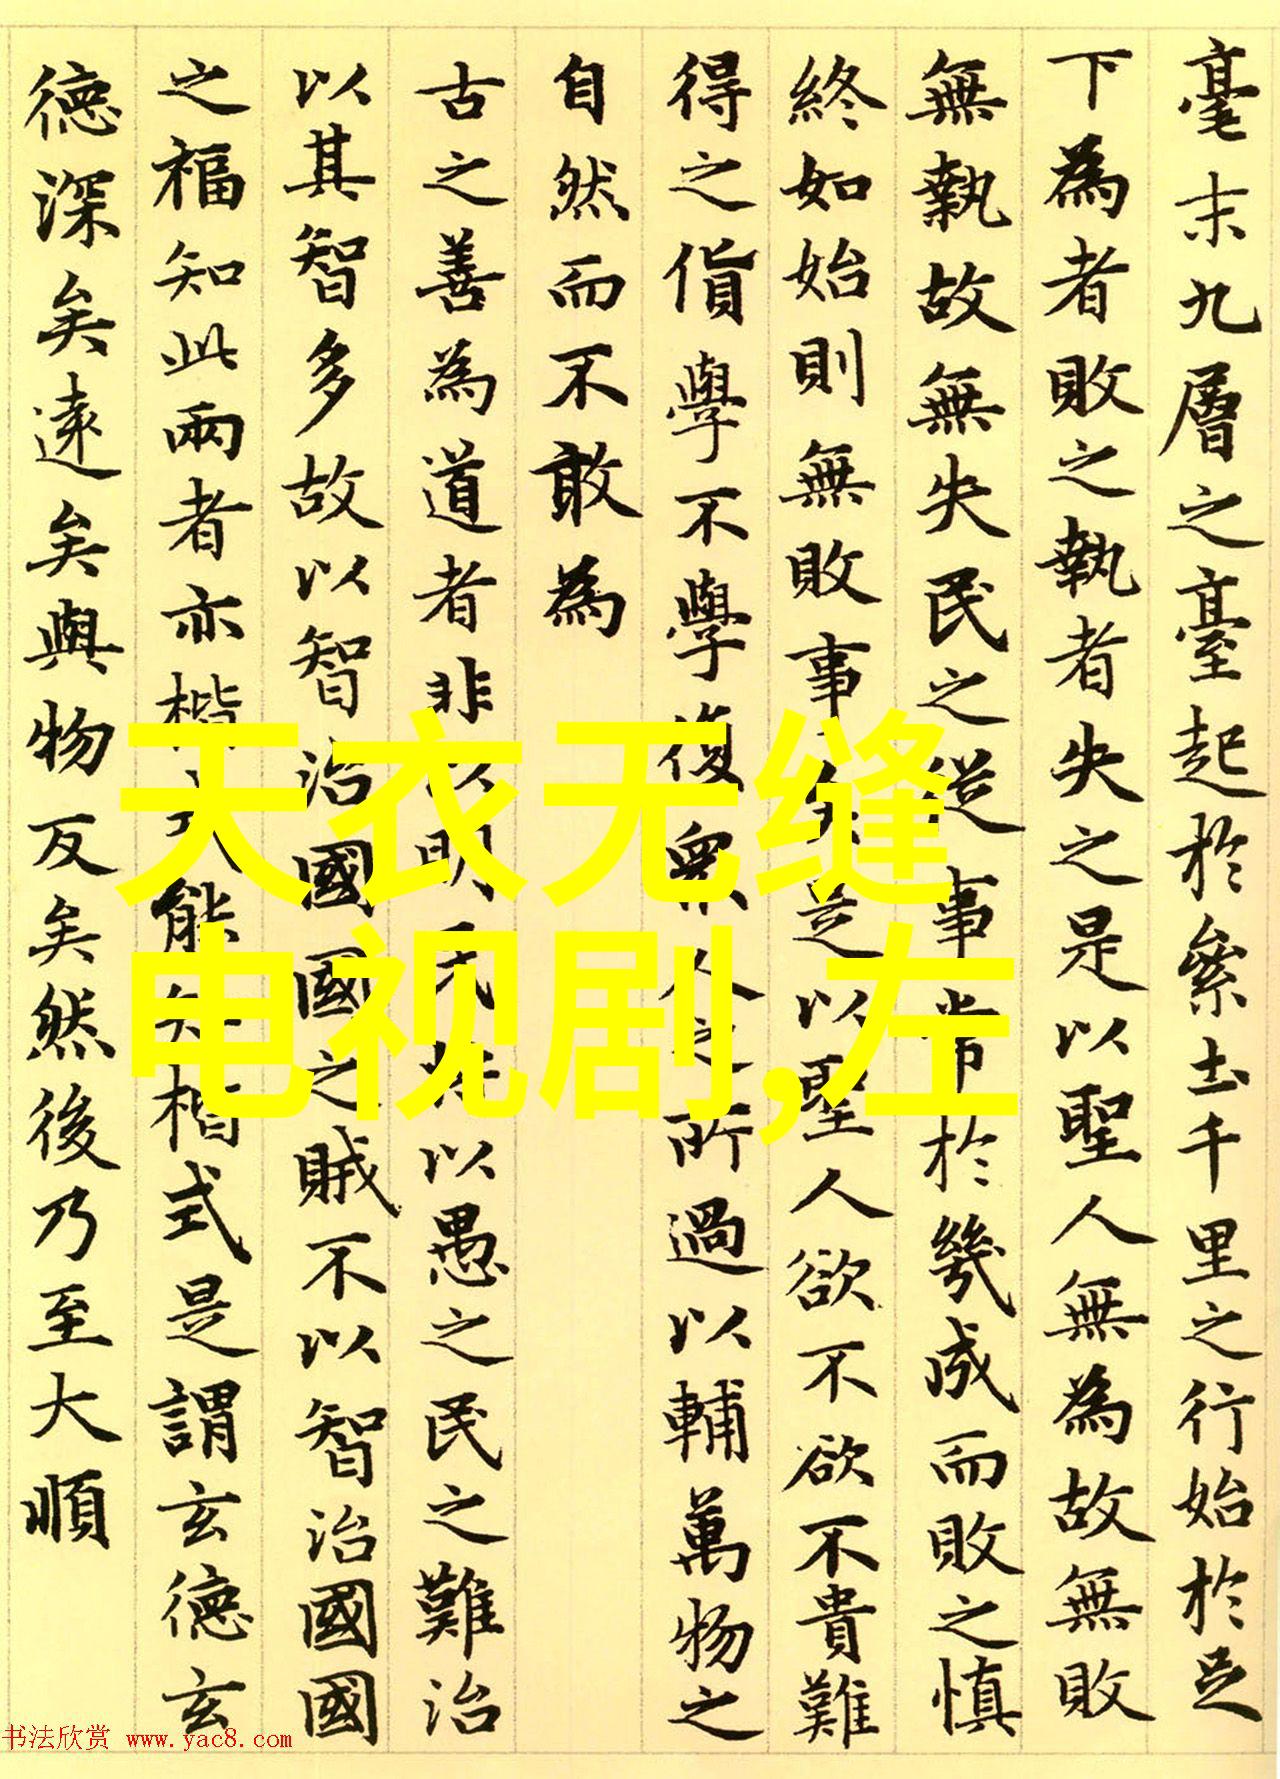 毫末九層之臺起於絫土千里之行始於足
下為者敗之執者失之是以聖人無為故無敗
無執故無失民之從事常於幾成而敗之慎
終如始則無敗事矣是以聖人欲不欲不貴難
得之貨學不學復眾人之所過以輔萬物之
自然而不敢為
古之善為道者非以明民將以愚之民之難治
以其智多故以智治國國之賊不以智治國國
之福知此兩者亦楷式能知楷式是謂玄德玄
德深矣遠矣與物反矣然後乃至大順
天衣无缝
电视剧,左
书法欣赏 www.yac8.com